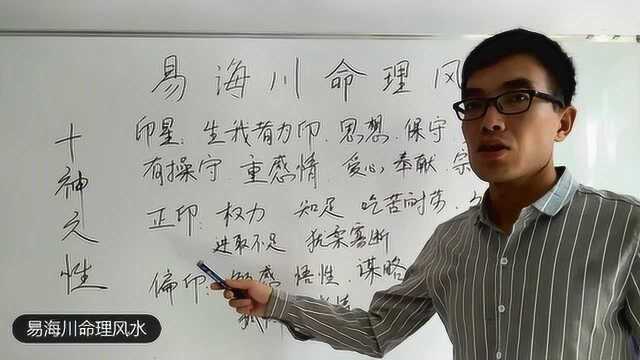 易海川命理风
十神之性
印星：生我者为印、思想、保守
有操守、重感情、爱心、奉献、宗
正印：权力 知足 吃苦耐劳、
进取不足 犹柔寡断
偏印： 悟性、谋略
易海川命理风水